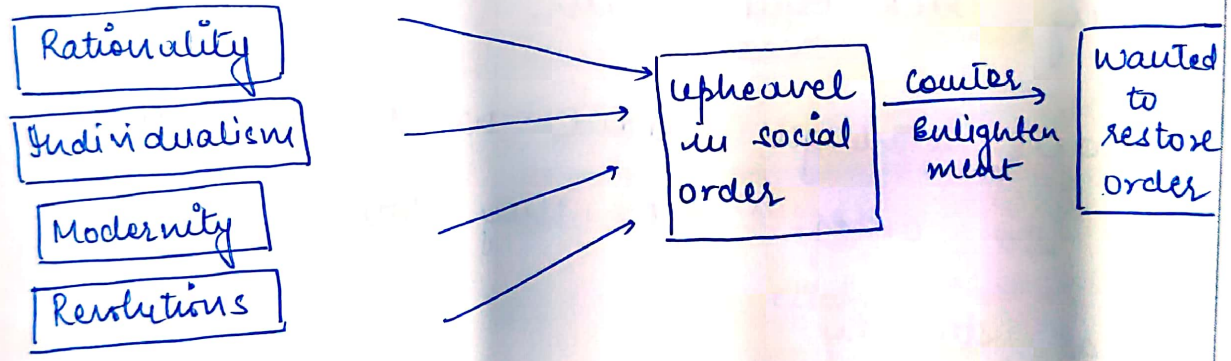 Rationality
Individualism
Modernity
Revolutions
upheavel
in social
order
counter
Enlighten
ment
wanted
to
restore
order